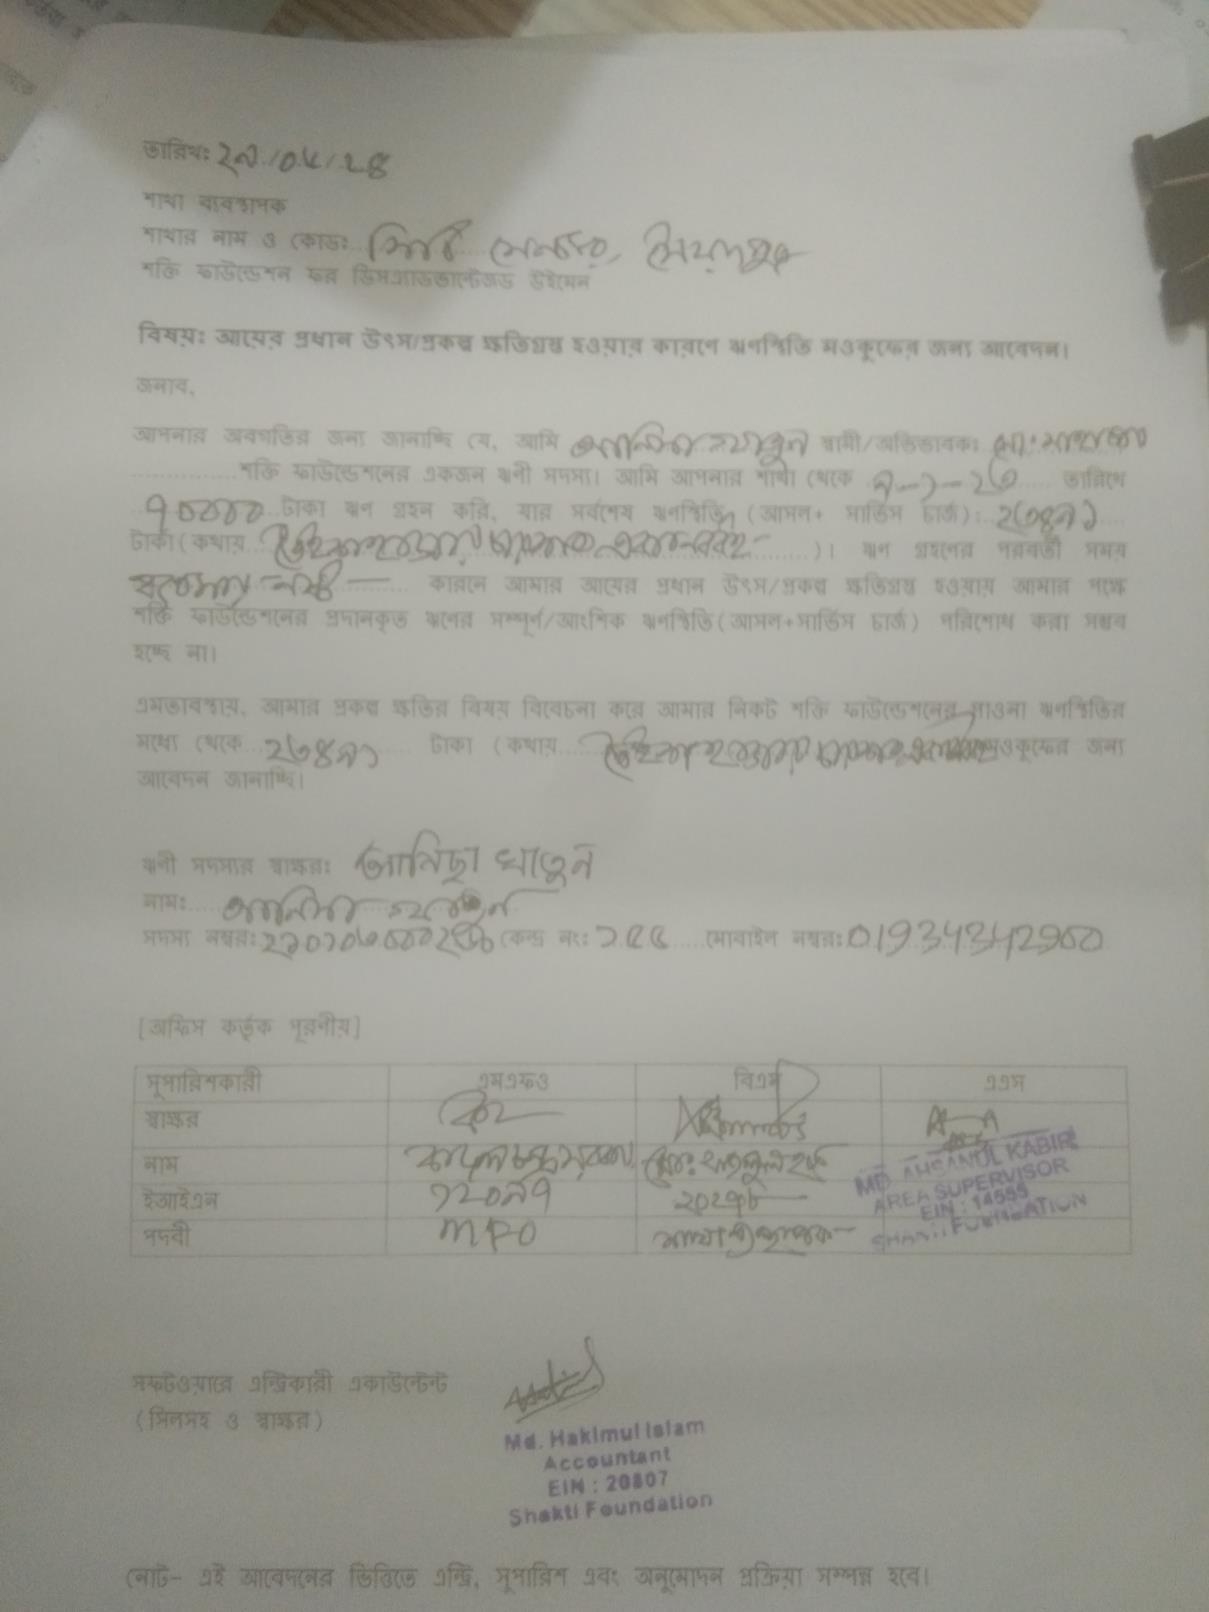 তারিখঃ ২৯/০৫/২৪
শাখা ব্যবস্থাপক
শাখার নাম ও কোডঃ
শক্তি ফাউন্ডেশন ফর ডিসএ্যাডভান্টেজড উইমেন
বিষয়ঃ আয়ের প্রধান উৎস/প্রকল্প ক্ষতিগ্রস্থ হওয়ার কারণে ঋণস্থিতি মওকুফের জন্য আবেদন।
জনাব,
আপনার অবগতির জন্য জানাচ্ছি যে, আমি আনিসা খাতুন স্বামী/অভিভাবকঃ
শক্তি ফাউন্ডেশনের একজন ঋণী সদস্য। আমি আপনার শাখা থেকে ৯-১-২৩ তারিখে
৭০০০০ টাকা ঋণ গ্রহন করি, যার সর্বশেষ ঋণস্থিতি (আসল+ সার্ভিস চার্জ): ২৩৪৯১
টাকা (কথায় তেইশ হাজার চারশত একানব্বই ) । ঋণ গ্রহণের পরবর্তী সময়
কারনে আমার আয়ের প্রধান উৎস/প্রকল্প ক্ষতিগ্রস্থ হওয়ায় আমার পক্ষে
শক্তি ফাউন্ডেশনের প্রদানকৃত ঋণের সম্পূর্ণ/আংশিক ঋণস্থিতি(আসল+সার্ভিস চার্জ) পরিশোধ করা সম্ভব
হচ্ছে না।
এমতাবস্থায়, আমার প্রকল্প ক্ষতির বিষয় বিবেচনা করে আমার নিকট শক্তি ফাউন্ডেশনের পাওনা ঋণস্থিতির
মধ্যে থেকে ২৩৪৯১ টাকা (কথায় তেইশ হাজার চারশত মওকুফের জন্য
আবেদন জানাচ্ছি।
ঋণী সদস্যর স্বাক্ষরঃ আনিছা খাতুন
নামঃ আনিসা খাতুন
সদস্য নম্বরঃ কেন্দ্র নং: ১৫৫ মোবাইল নম্বরঃ 01934342900
[অফিস কর্তৃক পূরণীয়]
সুপারিশকারী এমএফও বিএম এএস
স্বাক্ষর
নাম
ইআইএন ১২০৯৭
পদবী MFO শাখা ব্যবস্থাপক
MD. AHSANUL KABIR
AREA SUPERVISOR
EIN : 14555
SHAKTI FOUNDATION
সফটওয়্যারে এন্ট্রিকারী একাউন্টেন্ট
(সিলসহ ও স্বাক্ষর)
Md. Hakimul Islam
Accountant
EIN : 20807
Shakti Foundation
নোট- এই আবেদনের ভিত্তিতে এন্ট্রি, সুপারিশ এবং অনুমোদন প্রক্রিয়া সম্পন্ন হবে।